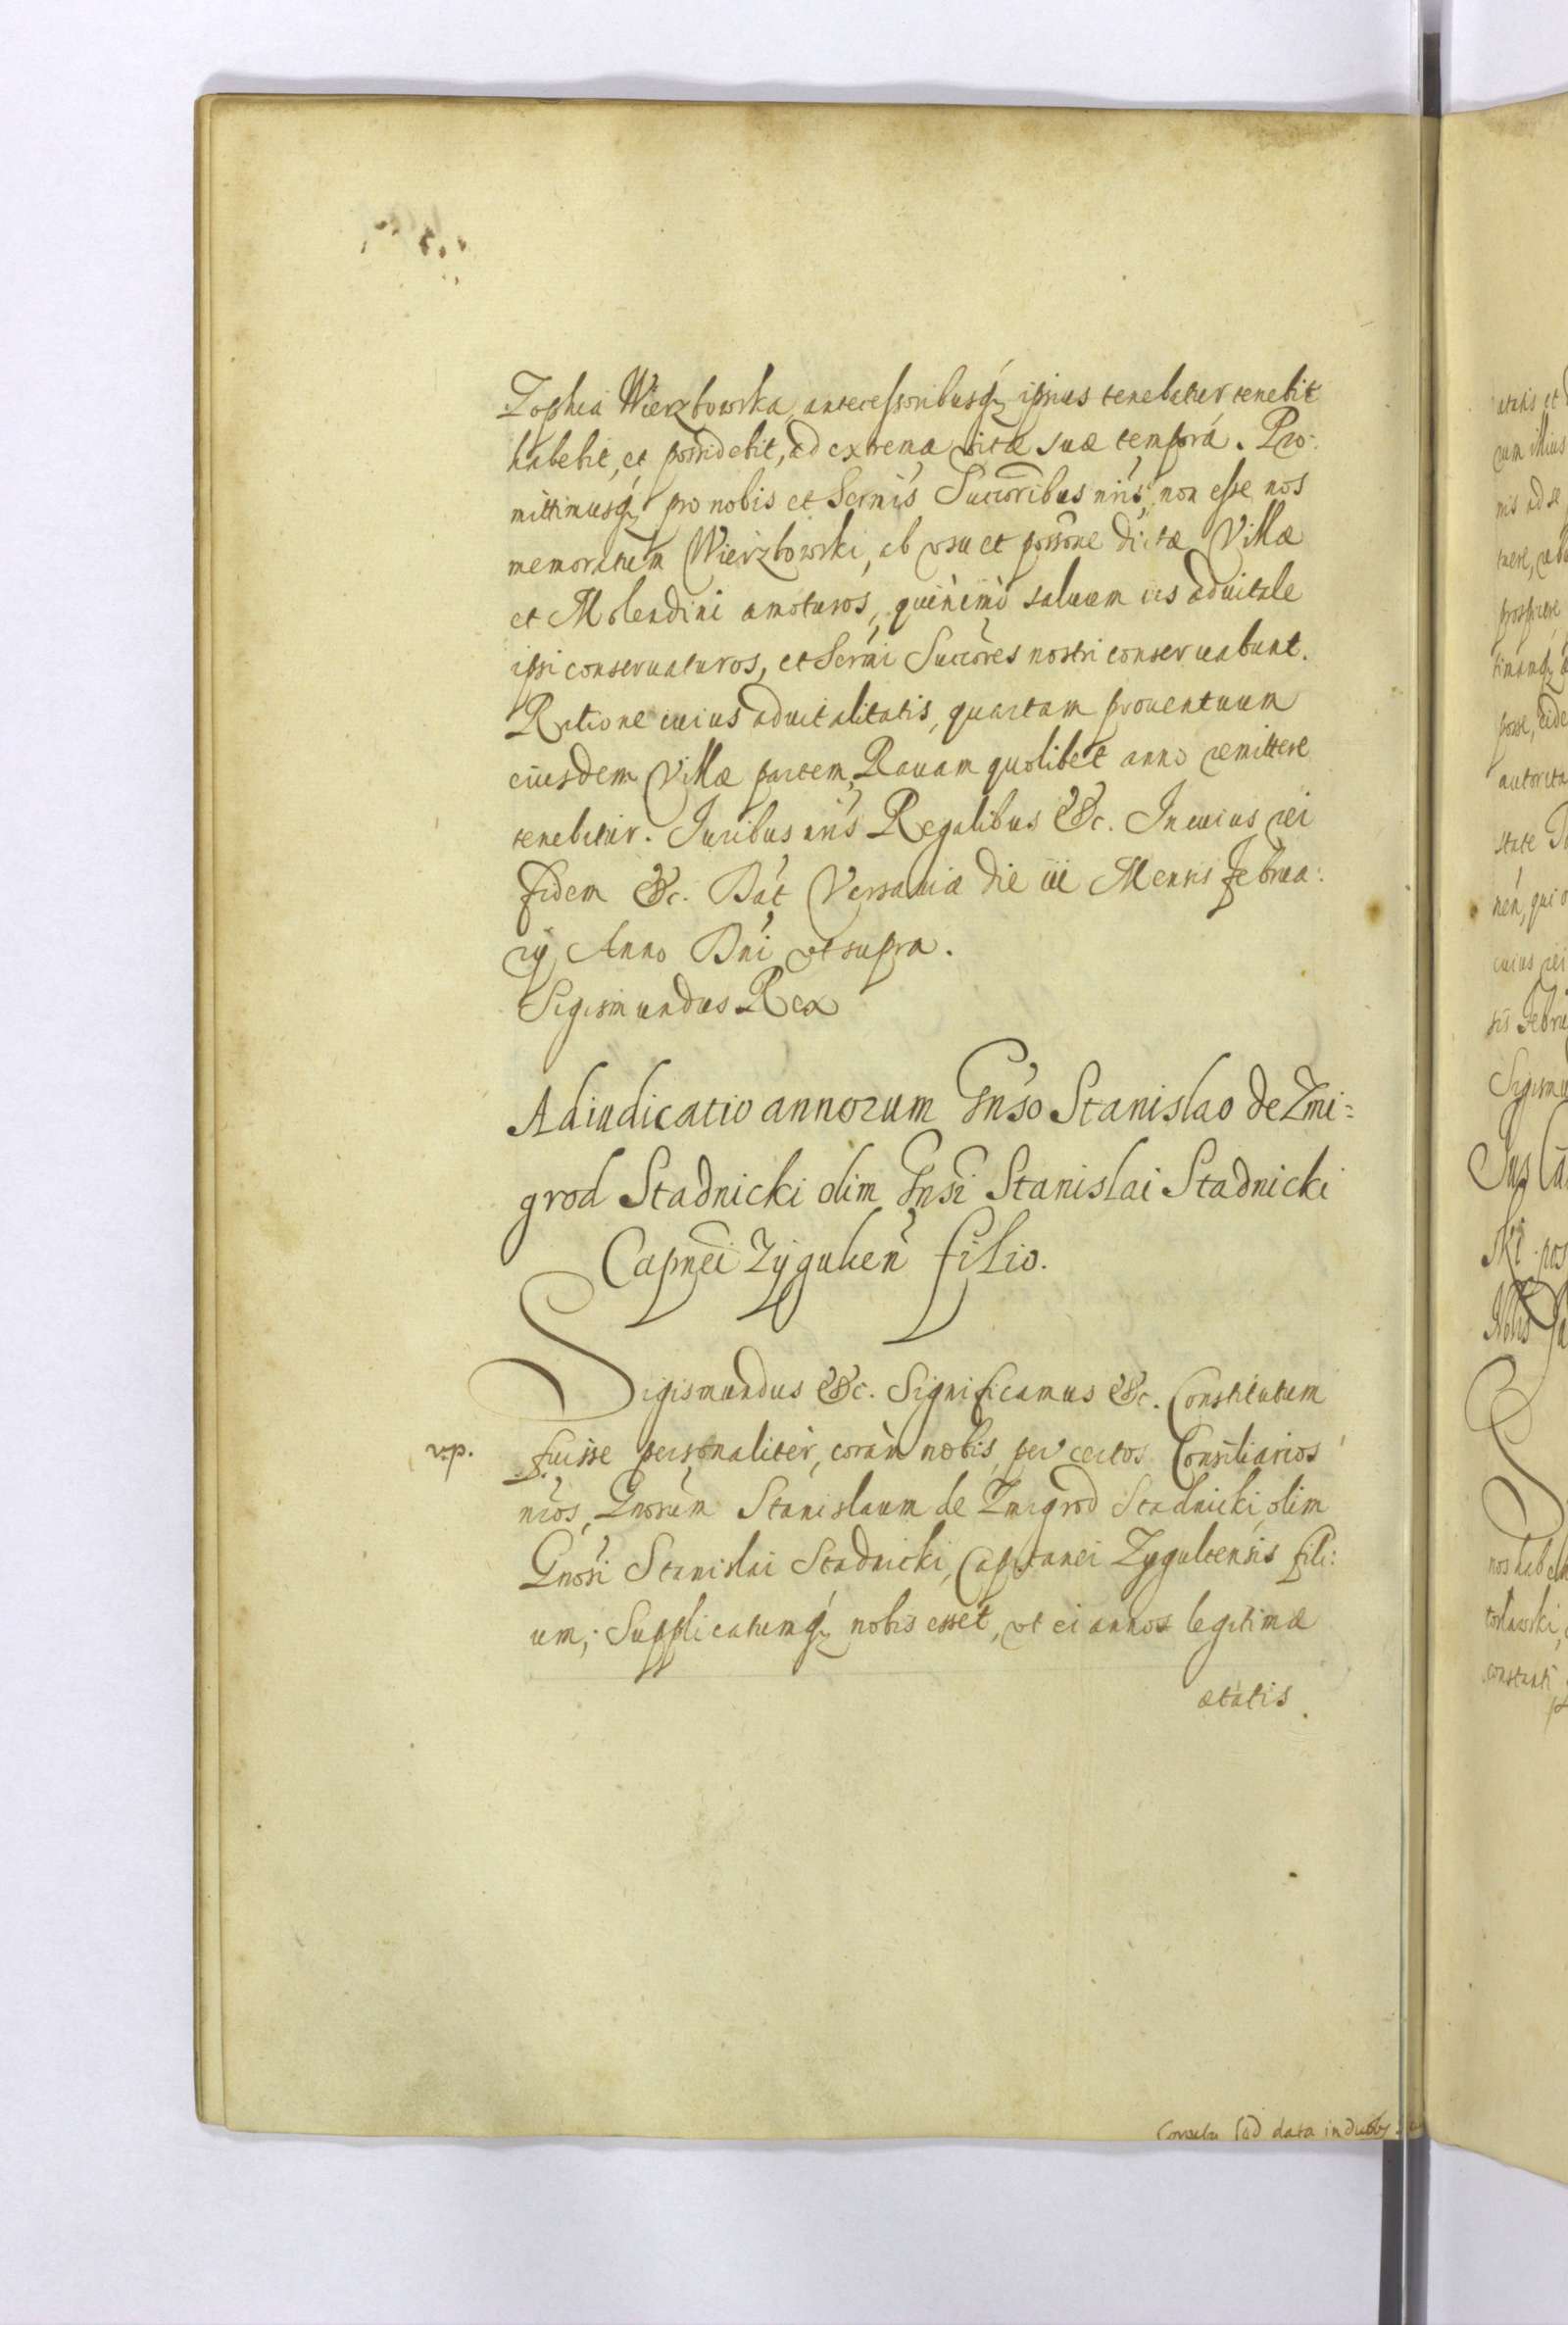 Zophia Wierzbowska, antecessoribusq̃ ipsius tenebatur tenebit
habebit, et possidebit, ad extrema vitæ suæ tempora. Pro:
mittimusq̃ pro nobis et Sermis Succoribus nris, non esse nos
memoratum Wierzbowski, ab vsu et possone dictæ Villæ
et Molendini amoturos, quinimo saluum ius aduitale
ipsi conseruaturos, et Sermi Succores nostri conseruabunt.
Ratione cuius aduitalitatis, quartam prouentuum
eiusdem Villæ partem, Rauam quolibet anno remittere
tenebitur. Juribus nris Regalibus &c. In cuius rei
fidem &c. Dat Varsauiæ die iii Mensis Februa:
rij Anno Dni vt supra.
Sigismundus Rex
Adiudicatio annorum Gnso Stanislao de Zmi=
grod Stadnicki olim Gnsi Stanislai Stadnicki
Capnei Zygulien filio.
Sigismundus &c. Significamus &c. Constitutum
v.p. fuisse personaliter, coram nobis, per certos Consiliarios
nros, Gnosum Stanislaum de Zmigrod Stadnicki, olim
Gnosi Stanislai Stadnicki, Capitanei Zygultensis fili:
um, Supplicatumq̃ nobis esset, vt ei annos legitimæ
ætatis
data in